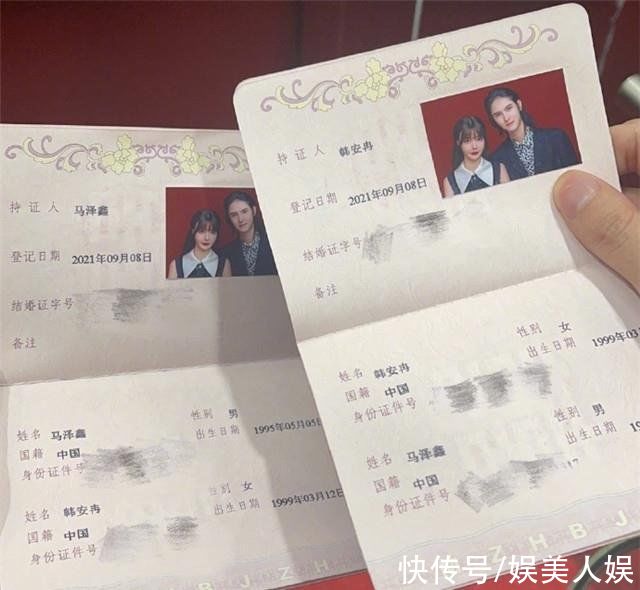 持证人 马泽鑫
登记日期 2021年09月08日
结婚证字号
备注
姓名 马泽鑫 性别 男
国籍 中国 出生日期 1995年05月05日
身份证件号
姓名 韩安冉 性别 女
国籍 中国 出生日期 1999年03月12日
身份证件号
B J Z H
持证人 韩安冉
登记日期 2021年09月08日
结婚证字号
备注
姓名 韩安冉 性别 女
国籍 中国 出生日期 1999年03
身份证件号
姓名 马泽鑫 性别 男
国籍 中国 出生日期
身份证件号
Z H B J
快传号/娱美人娱